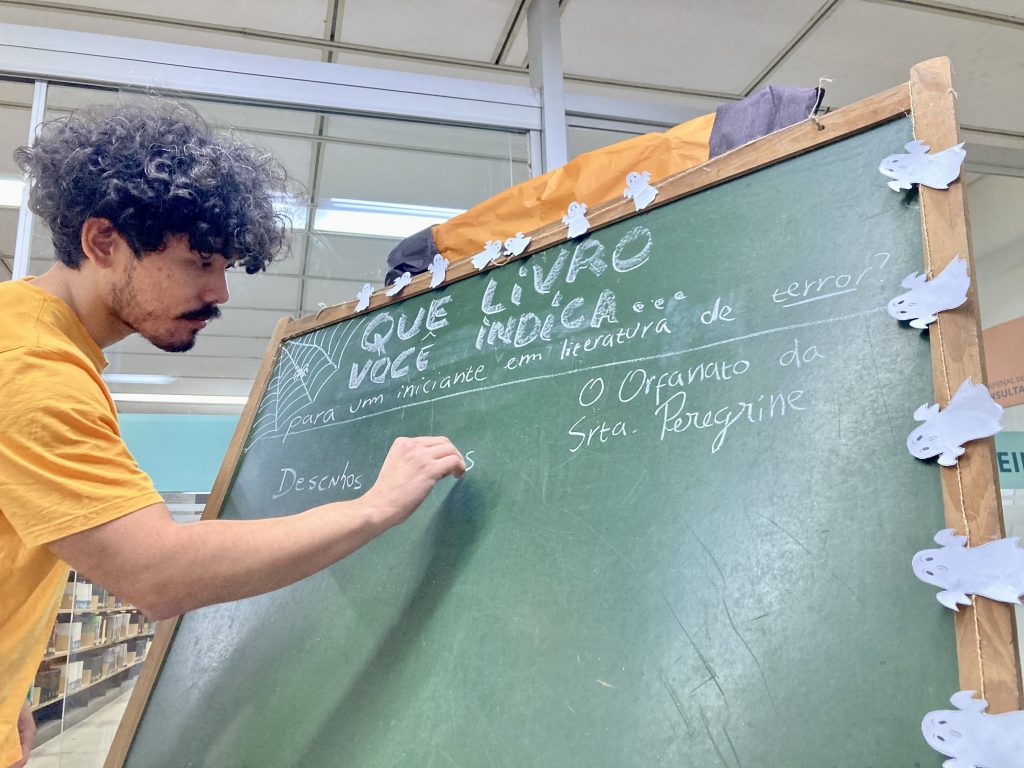 QUE LIVRO
VOCÊ INDICA...
para um iniciante em literatura de terror?
O Orfanato da
Srta. Peregrine
Desenhos